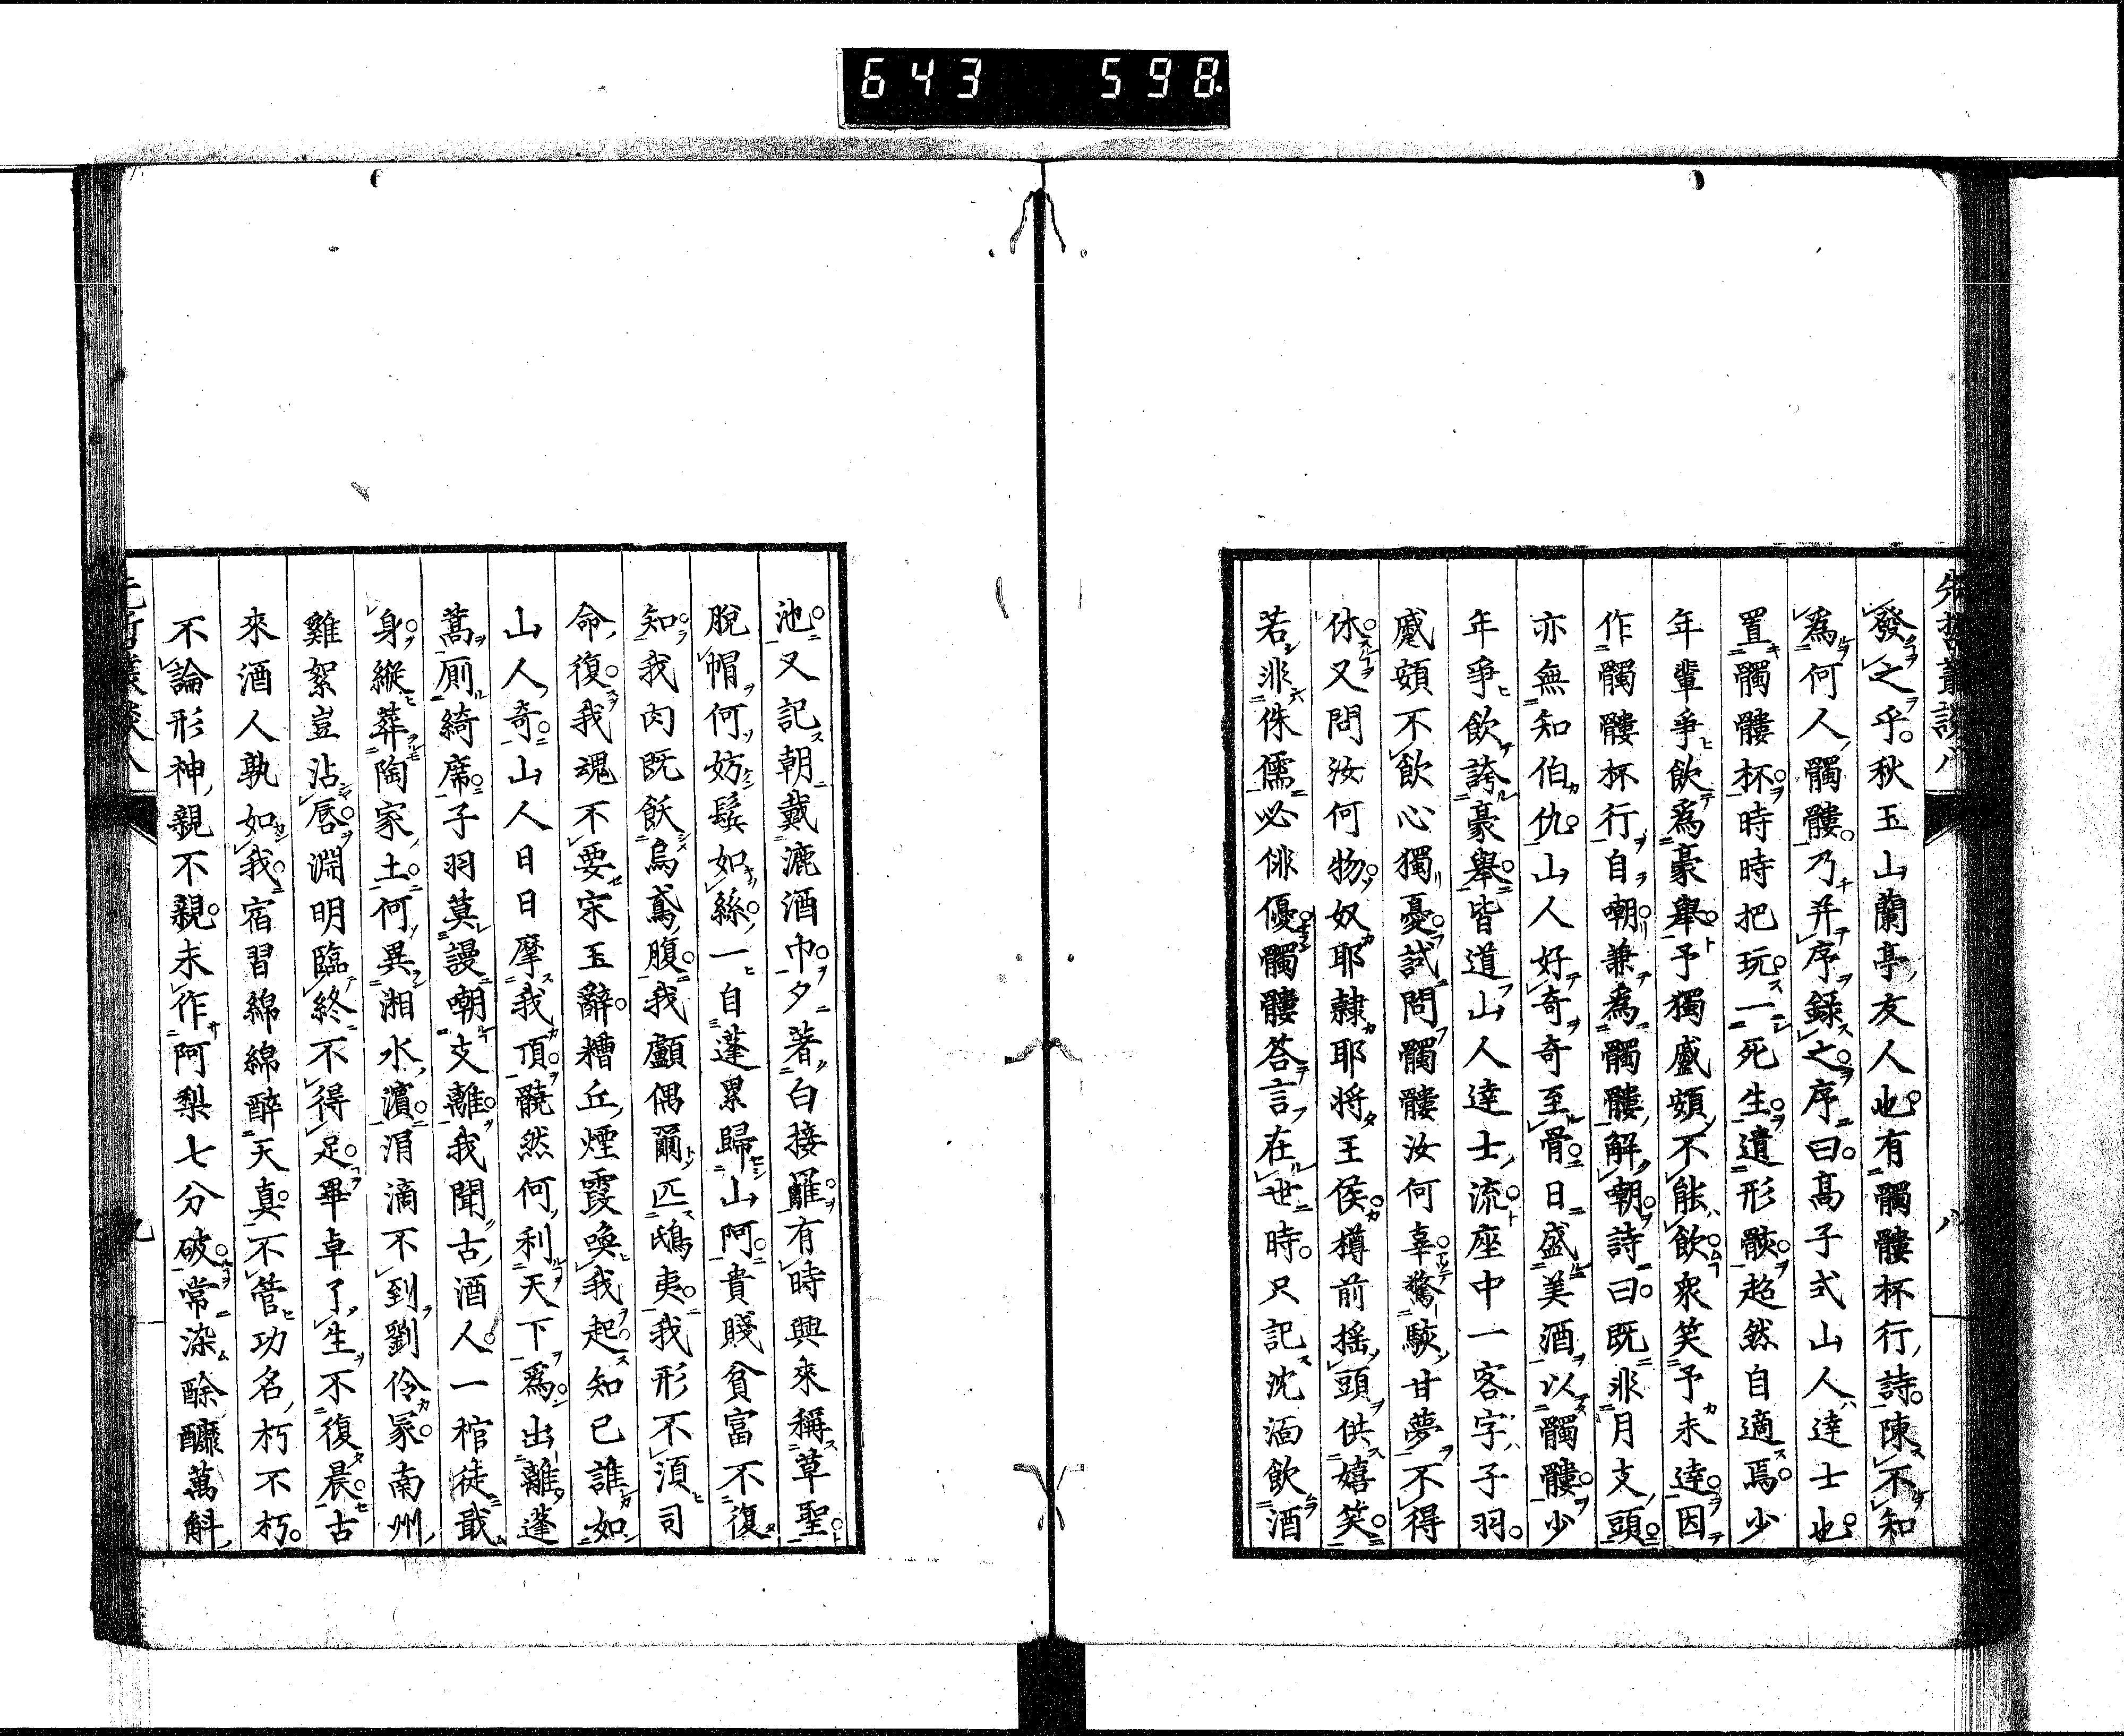 643 598
先哲叢談 八
發之乎。秋玉山蘭亭友人也。有髑髏杯行詩。陳不知
爲何人髑髏。乃并序錄之。序曰。高子式山人達士也。
置髑髏杯。時時把玩。一死生。遺形骸。超然自適焉。少
年輩爭飲爲豪舉。予獨蹙頞不能飲。衆笑予未達。因
作髑髏杯行。自嘲兼爲髑髏解嘲。詩曰。既非月支頭。
亦無知伯仇。山人好奇奇至骨。日盛美酒以髑髏。少
年爭飲誇豪舉。皆道山人達士流。座中一客字子羽。
蹙頞不飲心獨憂。試問髑髏汝何辜。驚駭甘夢不得
休。又問汝何物。奴耶隸耶將王侯。樽前搖頭供嬉笑。
若非侏儒必俳優。髑髏答言在世時。只記沈湎飲酒
八
池。又記朝戴漉酒巾。夕著白接䍦。有時興來稱草聖。
脫帽何妨鬢如絲。一自蓬累歸山阿。貴賤貧富不復
知。我肉既飫烏鳶腹。我顱偶爾匹鴟夷。我形不須司
命復。我魂不要宋玉辭。糟丘煙霞喚我起。知己誰如
山人奇。山人日日摩我頂。髐然何利天下爲。出離蓬
蒿廁綺席。子羽莫謾嘲支離。我聞古酒人。一棺徒戢
身。縱葬陶家土。何異湘水濱。涓滴不到劉伶冢。南州
雞絮豈沾唇。淵明臨終不得足。畢卓了生不復晨。古
來酒人孰如我。宿習綿綿醉天真。不管功名朽不朽。
不論形神親不親。未作阿梨七分破。常染酴醾萬斛
九